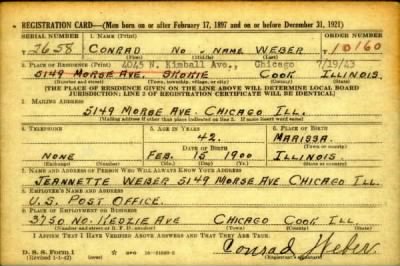 REGISTRATION CARD—(Men born on or after February 17, 1897 and on or before December 31, 1921)
SERIAL NUMBER 1. NAME (Print) ORDER NUMBER
T 2658 CONRAD NO - NAME WEBER 10160
4045 N. Kimball Ave., Chicago 7/19/43
2. PLACE OF RESIDENCE (Print)
5149 MORSE AVE. SKOKIE COOK ILLINOIS.
(Number and street) (Town, township, village, or city) (County) (State)
[THE PLACE OF RESIDENCE GIVEN ON THE LINE ABOVE WILL DETERMINE LOCAL BOARD
JURISDICTION; LINE 2 OF REGISTRATION CERTIFICATE WILL BE IDENTICAL]
3. MAILING ADDRESS
5149 MORSE AVE. CHICAGO ILL.
[Mailing address if other than place indicated on line 2. If same insert word same]
4. TELEPHONE 5. AGE IN YEARS 6. PLACE OF BIRTH
42. MARISSA.
DATE OF BIRTH
NONE FEB. 15 1900 ILLINOIS
(Exchange) (Number) (Mo.) (Day) (Yr.) (State or country)
7. NAME AND ADDRESS OF PERSON WHO WILL ALWAYS KNOW YOUR ADDRESS
JEANNETTE WEBER 5149 MORSE AVE CHICAGO ILL.
8. EMPLOYER'S NAME AND ADDRESS
U.S. POST OFFICE.
9. PLACE OF EMPLOYMENT OR BUSINESS
3750 NO. KEDZIE AVE CHICAGO COOK ILL.
(Number and street or R. F. D. number) (Town) (County) (State)
I AFFIRM THAT I HAVE VERIFIED ABOVE ANSWERS AND THAT THEY ARE TRUE.
D. S. S. Form 1
(Revised 1-1-42) GPO
Conrad Weber
(Registrant's signature)